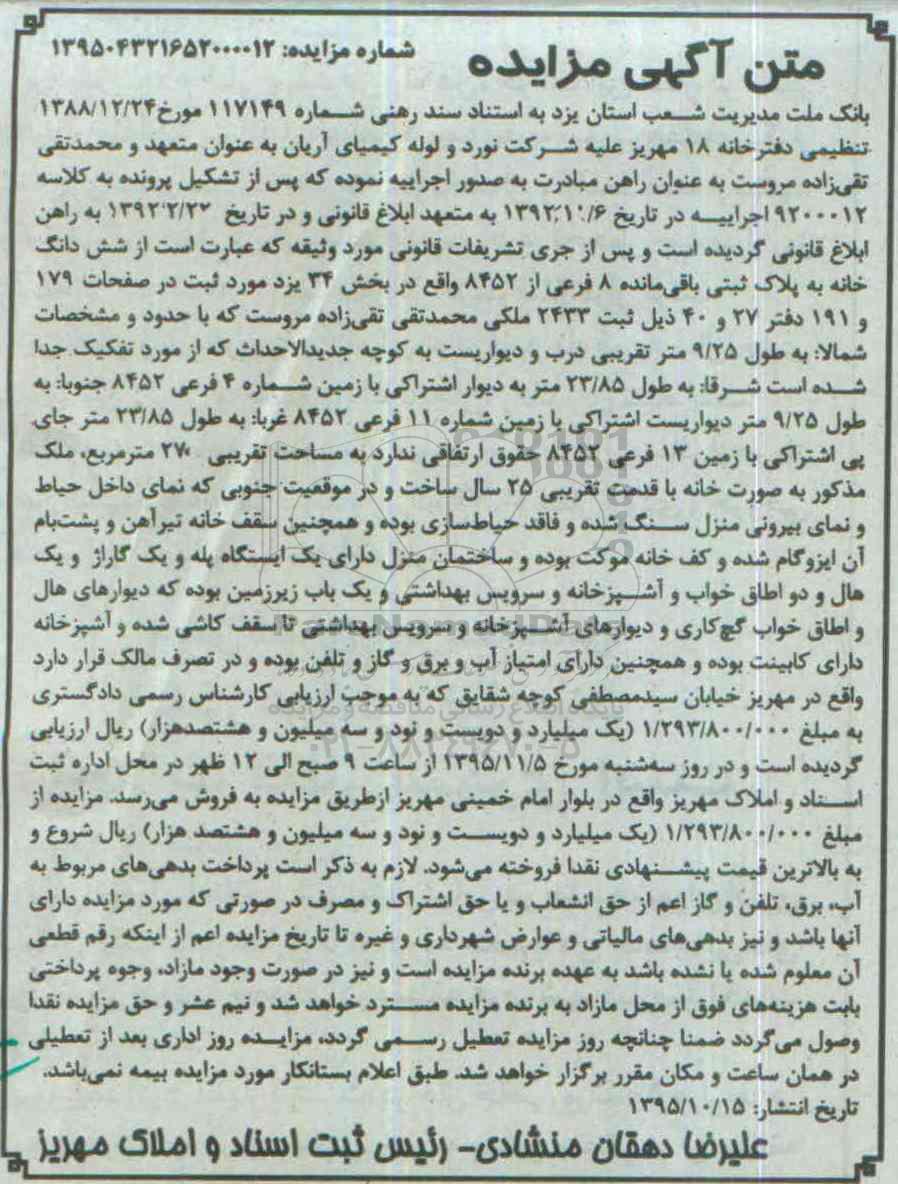 متن آگهی مزایده
شماره مزایده: ۱۳۹۵۰۴۳۲۱۶۵۲۰۰۰۰۱۲
بانک ملت مدیریت شعب استان یزد به استناد سند رهنی شماره ۱۱۷۱۴۹ مورخ۱۳۸۸/۱۲/۲۴
تنظیمی دفترخانه ۱۸ مهریز علیه شرکت نورد و لوله کیمیای آریان به عنوان متعهد و محمدتقی
تقی‌زاده مروست به عنوان راهن مبادرت به صدور اجراییه نموده که پس از تشکیل پرونده به کلاسه
۹۲۰۰۰۱۲ اجراییه در تاریخ به متعهد ابلاغ قانونی و در تاریخ به راهن
ابلاغ قانونی گردیده است و پس از جری تشریفات قانونی مورد وثیقه که عبارت است از شش دانگ
خانه به پلاک ثبتی باقی‌مانده ۸ فرعی از ۸۴۵۲ واقع در بخش ۳۴ یزد مورد ثبت در صفحات ۱۷۹
و ۱۹۱ دفتر ۲۷ و ۴۰ ذیل ثبت ۲۴۳۳ ملکی محمدتقی تقی‌زاده مروست که با حدود و مشخصات
شمالا: به طول ۹/۲۵ متر تقریبی درب و دیواریست به کوچه جدیدالاحداث که از مورد تفکیک جدا
شده است شرقا: به طول ۲۳/۸۵ متر به دیوار اشتراکی با زمین شماره ۴ فرعی ۸۴۵۲ جنوبا: به
طول ۹/۲۵ متر دیواریست اشتراکی با زمین شماره ۱۱ فرعی ۸۴۵۲ غربا: به طول ۲۳/۸۵ متر جای
پی اشتراکی با زمین ۱۳ فرعی ۸۴۵۲ حقوق ارتفاقی ندارد به مساحت تقریبی ۲۷۰ مترمربع، ملک
مذکور به صورت خانه با قدمت تقریبی ۲۵ سال ساخت و در موقعیت جنوبی که نمای داخل حیاط
و نمای بیرونی منزل سنگ شده و فاقد حیاط‌سازی بوده و همچنین سقف خانه تیرآهن و پشت‌بام
آن ایزوگام شده و کف خانه موکت بوده و ساختمان منزل دارای یک ایستگاه پله و یک گاراژ و یک
هال و دو اطاق خواب و آشپزخانه و سرویس بهداشتی و یک باب زیرزمین بوده که دیوارهای هال
و اطاق خواب گچ‌کاری و دیوارهای آشپزخانه و سرویس بهداشتی تا سقف کاشی شده و آشپزخانه
دارای کابینت بوده و همچنین دارای امتیاز آب و برق و گاز و تلفن بوده و در تصرف مالک قرار دارد
واقع در مهریز خیابان سیدمصطفی کوچه شقایق که به موجب ارزیابی کارشناس رسمی دادگستری
به مبلغ ۱/۲۹۳/۸۰۰/۰۰۰ (یک میلیارد و دویست و نود و سه میلیون و هشتصدهزار) ریال ارزیابی
گردیده است و در روز سه‌شنبه مورخ ۱۳۹۵/۱۱/۵ از ساعت ۹ صبح الی ۱۲ ظهر در محل اداره ثبت
اسناد و املاک مهریز واقع در بلوار امام خمینی مهریز ازطریق مزایده به فروش می‌رسد. مزایده از
مبلغ ۱/۲۹۳/۸۰۰/۰۰۰ (یک میلیارد و دویست و نود و سه میلیون و هشتصد هزار) ریال شروع و
به بالاترین قیمت پیشنهادی نقدا فروخته می‌شود. لازم به ذکر است پرداخت بدهی‌های مربوط به
آب، برق، تلفن و گاز اعم از حق انشعاب و یا حق اشتراک و مصرف در صورتی که مورد مزایده دارای
آنها باشد و نیز بدهی‌های مالیاتی و عوارض شهرداری و غیره تا تاریخ مزایده اعم از اینکه رقم قطعی
آن معلوم شده یا نشده باشد به عهده برنده مزایده است و نیز در صورت وجود مازاد، وجوه پرداختی
بابت هزینه‌های فوق از محل مازاد به برنده مزایده مسترد خواهد شد و نیم عشر و حق مزایده نقدا
وصول می‌گردد ضمنا چنانچه روز مزایده تعطیل رسمی گردد، مزایده روز اداری بعد از تعطیلی
در همان ساعت و مکان مقرر برگزار خواهد شد. طبق اعلام بستانکار مورد مزایده بیمه نمی‌باشد.
تاریخ انتشار: ۱۳۹۵/۱۰/۱۵
علیرضا دهقان منشادی- رئیس ثبت اسناد و املاک مهریز